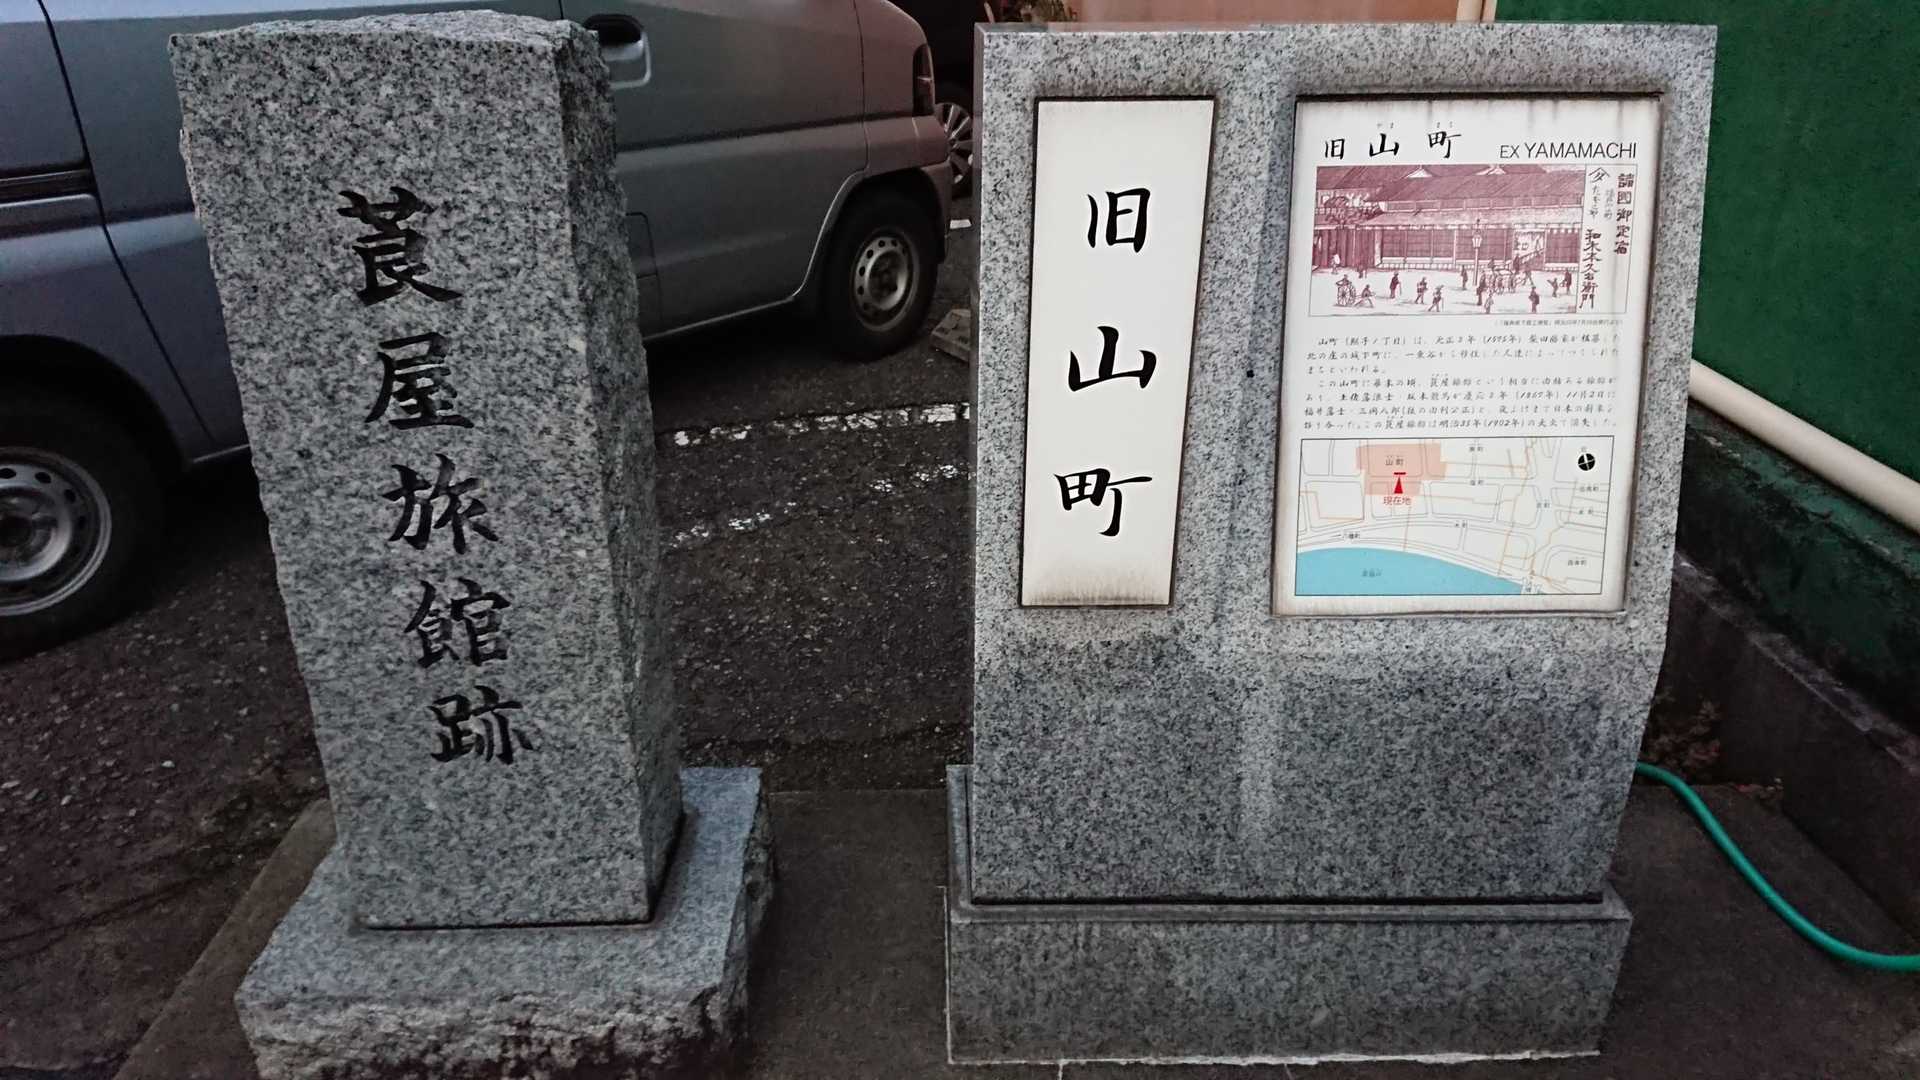 莨屋旅館跡
旧山町
旧山町
やま まち
EX YAMAMACHI
諸国御定宿
和木木久右衛門
山町(照手1丁目)は、天正3年(1575年)柴田勝家が構築した
北の庄の城下町に、一乗谷から移住した人達によってつくられた
まちといわれる。
この山町に幕末の頃、莨屋旅館という相当に由緒ある旅館が
あり、土佐藩浪士・坂本龍馬が慶応3年(1867年)11月2日に
福井藩士・三岡八郎(後の由利公正)と、夜ふけまで日本の将来を
語り合った。この莨屋旅館は明治35年(1902年)の大火で消失した。
山町
現在地
塩町
木町
八幡町
足羽川
北